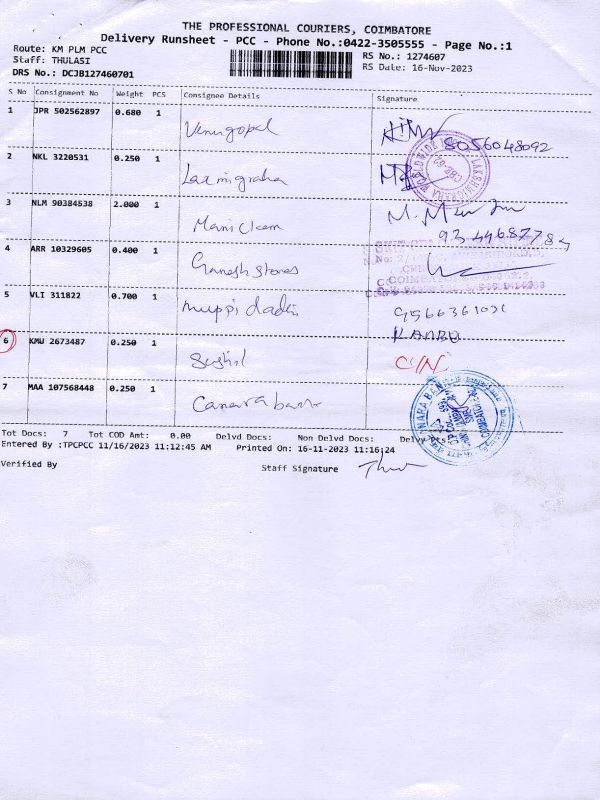 THE PROFESSIONAL COURIERS, COIMBATORE
Delivery Runsheet - PCC - Phone No.:0422-3505555 - Page No.:1
Route: KM PLM PCC
Staff: THULASI
DRS No.: DCJB127460701
RS No.: 1274607
RS Date: 16-Nov-2023
S No Consignment No Weight PCS Consignee Details Signature
1 JPR 502562897 0.680 1 Venugopal 8056048092
2 NKL 3220531 0.250 1
3 NLM 90384538 2.000 1
4 ARR 10329605 0.400 1 Ganesh stores
5 VLI 311822 0.700 1 9566361031
6 KMU 2673487 0.250 1 C/N
7 MAA 107568448 0.250 1 Canara bank
Tot Docs: 7 Tot COD Amt: 0.00 Delvd Docs: Non Delvd Docs: Delvy Pts:
Entered By :TPCPCC 11/16/2023 11:12:45 AM Printed On: 16-11-2023 11:16:24
Verified By Staff Signature